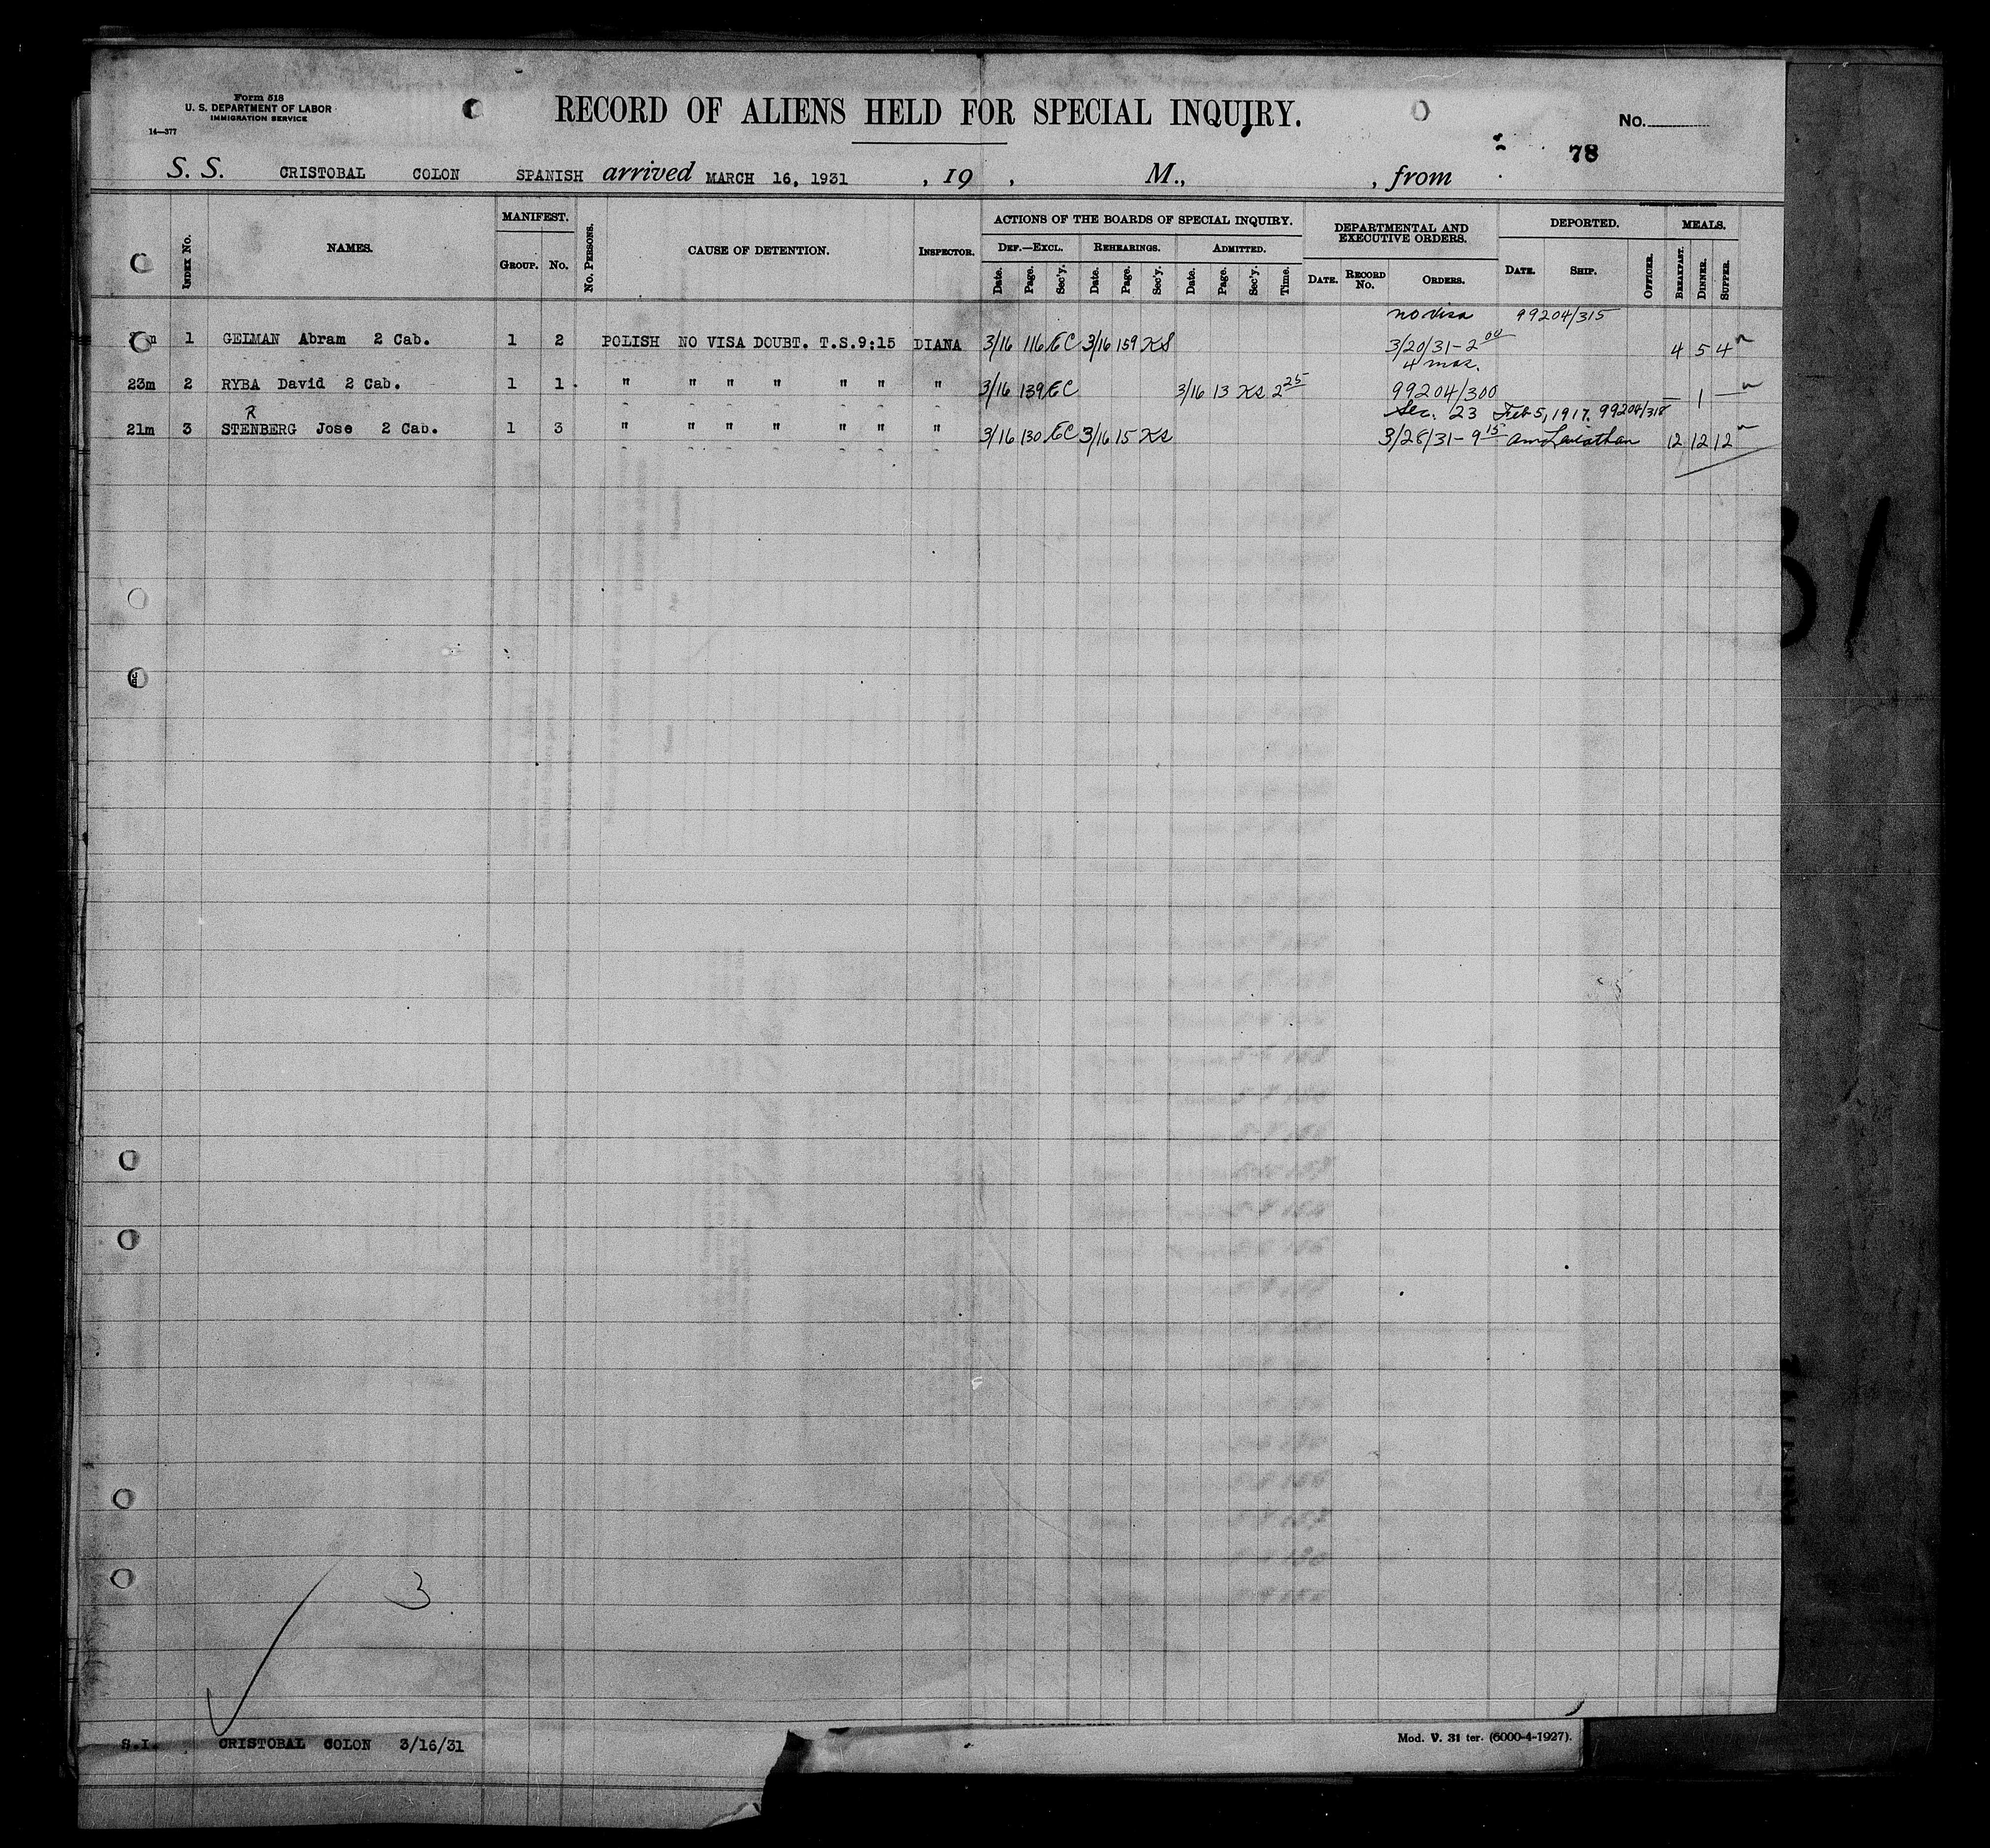 Form 518
U. S. DEPARTMENT OF LABOR
IMMIGRATION SERVICE
14—377
RECORD OF ALIENS HELD FOR SPECIAL INQUIRY.
No.
78
S. S. CRISTOBAL COLON SPANISH arrived MARCH 16, 1931 , 19 , M., , from
INDEX No. NAMES. MANIFEST. No. PERSONS. CAUSE OF DETENTION. INSPECTOR. ACTIONS OF THE BOARDS OF SPECIAL INQUIRY. DEPARTMENTAL AND EXECUTIVE ORDERS. DEPORTED. MEALS.
GROUP. No. DEF.—EXCL. REHEARINGS. ADMITTED.
Date. Page. Sec'y. Date. Page. Sec'y. Date. Page. Sec'y. Time. DATE. RECORD No. ORDERS. DATE. SHIP. OFFICER. BREAKFAST. DINNER. SUPPER.
no visa 99204/315
1 GELMAN Abram 2 Cab. 1 2 POLISH NO VISA DOUBT. T.S.9:15 DIANA 3/16 116 EC 3/16 159 KS 3/20/31-2 00 4 5 4
4 mos.
23m 2 RYBA David 2 Cab. 1 1 " " " " " " " 3/16 139 EC 3/16 13 KS 2 25 99204/300 — 1 —
R Sec. 23 Feb 5, 1917. 99204/318
21m 3 STENBERG Jose 2 Cab. 1 3 " " " " " " " 3/16 130 EC 3/16 15 KS 3/28/31-9 15 am Leviathan 12 12 12
31
3
S.I. CRISTOBAL COLON 3/16/31
Mod. V. 31 ter. (6000-4-1927).